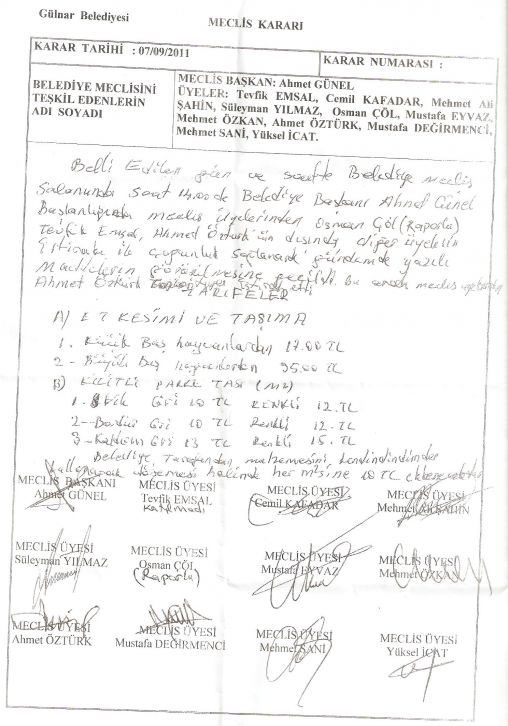 Gülnar Belediyesi
MECLİS KARARI
KARAR TARİHİ : 07/09/2011
KARAR NUMARASI :
BELEDİYE MECLİSİNİ
TEŞKİL EDENLERİN
ADI SOYADI
MECLİS BAŞKAN: Ahmet GÜNEL
ÜYELER: Tevfik EMSAL, Cemil KAFADAR, Mehmet Ali
ŞAHİN, Süleyman YILMAZ, Osman ÇÖL, Mustafa EYVAZ,
Mehmet ÖZKAN, Ahmet ÖZTÜRK, Mustafa DEĞİRMENCİ,
Mehmet SANİ, Yüksel İCAT.
Belli Edilen gün ve saatte Belediye Meclis
Salonunda saat Belediye Başkanı Ahmet Günel
Başkanlığında meclis üyelerinden Osman Çöl (Raporlu)
Tevfik Emsal, Ahmet Öztürk'ün dışında, diğer üyelerin
iştiraki ile çoğunluk sağlanarak gündemde yazılı
Maddelerin görüşülmesine geçildi. bu arada meclis üyelerinden
Ahmet Öztürk iştirak etti
TARİFELER
A) ET KESİMİ VE TAŞIMA
1. Küçük Baş hayvanlardan 17.00 TL
2- Büyük Baş hayvanlardan 95.00 TL
B) KİLİTLİ PARKE TAŞI (M2)
1. Gri 10 TL RENKLİ 12.TL
2- Bordür Gri 10 TL Renkli 12.TL
3- Kaldırım Gri 13 TL Renkli 15.TL
Belediye Tarafından malzemesini
döşemesi halinde her m²sine 10 TL
MECLİS BAŞKANI
Ahmet GÜNEL
MECLİS ÜYESİ
Tevfik EMSAL
Katılmadı
MECLİS ÜYESİ
Cemil KAFADAR
MECLİS ÜYESİ
Mehmet Ali ŞAHİN
MECLİS ÜYESİ
Süleyman YILMAZ
MECLİS ÜYESİ
Osman ÇÖL
(Raporlu)
MECLİS ÜYESİ
Mustafa EYVAZ
MECLİS ÜYESİ
Mehmet ÖZKAN
MECLİS ÜYESİ
Ahmet ÖZTÜRK
MECLİS ÜYESİ
Mustafa DEĞİRMENCİ
MECLİS ÜYESİ
Mehmet SANİ
MECLİS ÜYESİ
Yüksel İCAT